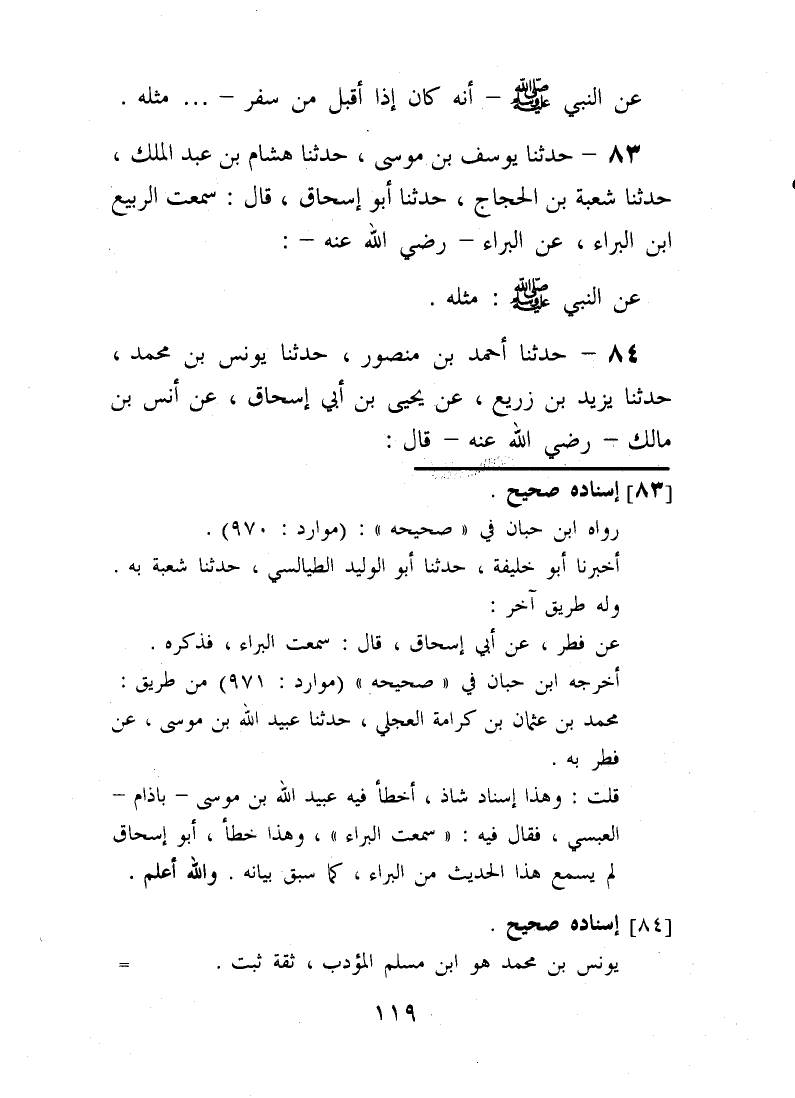 عن النبي ﷺ – أنه كان إذا أقبل من سفر – ... مثله .
٨٣ – حدثنا يوسف بن موسى ، حدثنا هشام بن عبد الملك ،
حدثنا شعبة بن الحجاج ، حدثنا أبو إسحاق ، قال : سمعت الربيع
ابن البراء ، عن البراء – رضي الله عنه – :
عن النبي ﷺ : مثله .
٨٤ – حدثنا أحمد بن منصور ، حدثنا يونس بن محمد ،
حدثنا يزيد بن زريع ، عن يحيى بن أبي إسحاق ، عن أنس بن
مالك – رضي الله عنه – قال :
[٨٣] إسناده صحيح .
رواه ابن حبان في « صحيحه » : (موارد : ٩٧٠) .
أخبرنا أبو خليفة ، حدثنا أبو الوليد الطيالسي ، حدثنا شعبة به .
وله طريق آخر :
عن فطر ، عن أبي إسحاق ، قال : سمعت البراء ، فذكره .
أخرجه ابن حبان في « صحيحه » (موارد : ٩٧١) من طريق :
محمد بن عثمان بن كرامة العجلي ، حدثنا عبيد الله بن موسى ، عن
فطر به .
قلت : وهذا إسناد شاذ ، أخطأ فيه عبيد الله بن موسى – باذام –
العبسي ، فقال فيه : « سمعت البراء » ، وهذا خطأ ، أبو إسحاق
لم يسمع هذا الحديث من البراء ، كما سبق بيانه . والله أعلم .
[٨٤] إسناده صحيح .
يونس بن محمد هو ابن مسلم المؤدب ، ثقة ثبت . =
١١٩